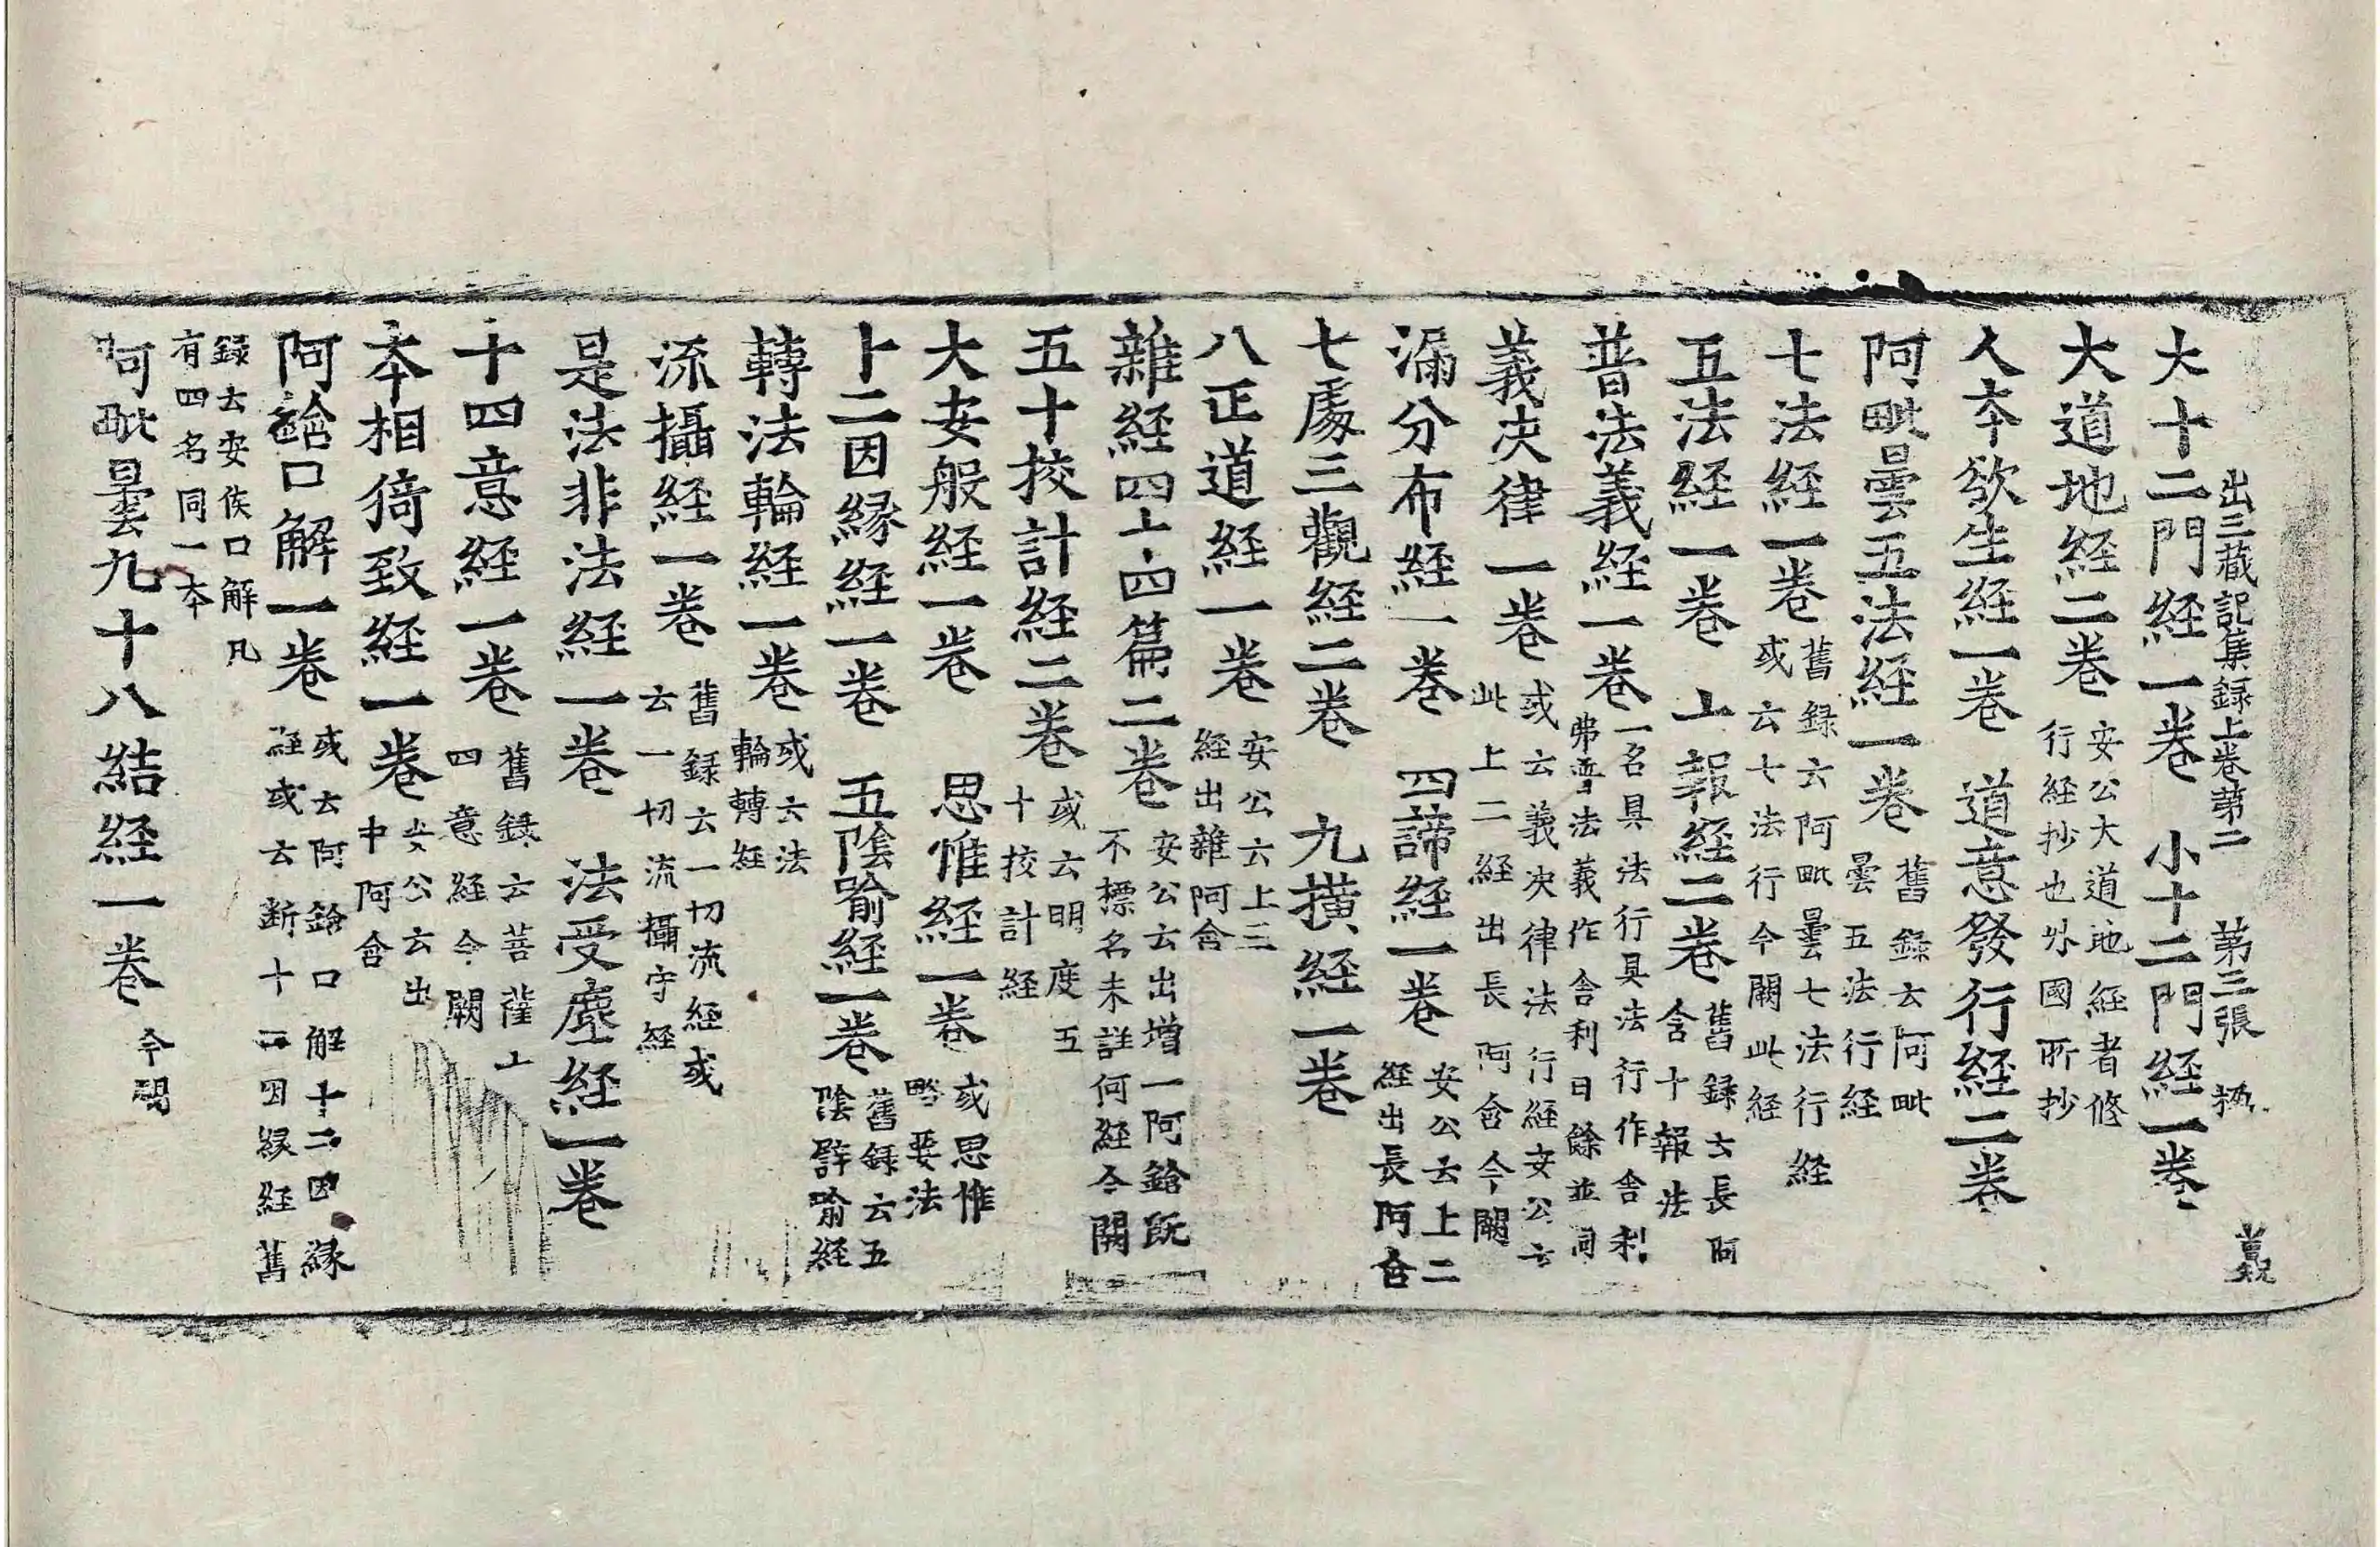 出三藏記集録上卷第二 第三張
大十二門経一卷 小十二門経一卷
大道地経二卷 安公大道地経者修
行経抄也外國所抄
人本欲生経一卷 道意發行経二卷
阿毗曇五法経一卷 舊録云阿毗
曇五法行経
七法経一卷 舊録云阿毗曇七法行経
或云七法行今闕此経
五法経一卷 十報経二卷 舊録云長阿
含十報法
普法義経一卷 一名具法行具法行作舍利
弗普法義作舍利曰餘並同
義決律一卷 或云義決律法行経安公云
此上二経出長阿含今闕
漏分布経一卷 四諦経一卷 安公云上二
経出長阿含
七處三觀経二卷 九橫経一卷
八正道経一卷 安公云上三
経出雜阿含
雜経四十四篇二卷 安公云出增一阿鋡既
不標名未詳何経今闕
五十挍計経二卷 或云明度五
十挍計経
大安般経一卷 思惟経一卷 或思惟
略要法
十二因縁経一卷 五陰喻経一卷 舊録云五
陰辟喻経
轉法輪経一卷 或云法
輪轉経
流攝経一卷 舊録云一切流経或
云一切流攝守経
是法非法経一卷 法受塵経一卷
十四意経一卷 舊録云菩薩十
四意経今闕
本相猗致経一卷 安公云出
中阿含
阿鋡口解一卷 或云阿鋡口解十二因縁
経或云断十二因縁経舊
録云安侯口解凡
有四名同一本
阿毗曇九十八結経一卷 今闕